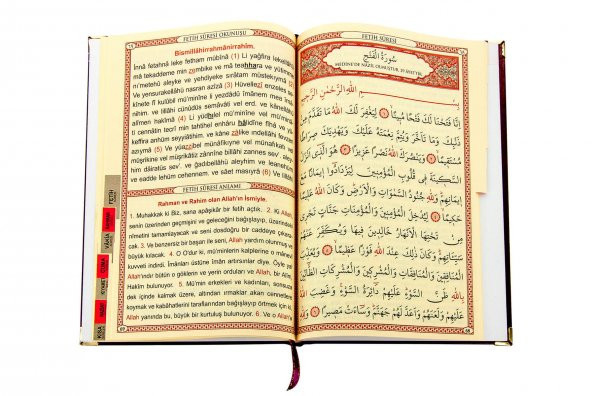 FETİH SÛRESİ OKUNUŞU
Bismillâhirrahmânirrahîm.
İnnâ fetahnâ leke fetham mübînâ (1) Li yağfira lekellâhü
mâ tekaddeme min zembike ve mâ teahhara ve yütimme
ni'metehû aleyke ve yehdiyeke srâtam müstekıymâ
Ve yensurakellâhü nasran azîzâ (3) Hüvellezî enzeles
kînete fî kulûbil mü'minîne li yezdâdû îmânen mea îmâ
nihim. ve lillâhi cünûdüs semâvâti vel erd. ve kânellâhü
alîmen hakîmâ (4) Li yüdhılel mü'minîne vel mü'minâ
ti cennâtin tecrî min tahtihel enhâru hâlidîne fîhâ ve yü
keffira anhüm seyyiâtihim. ve kâne zâlike indellâhi fevzen
azıymâ (5) Ve yüazzibel münâfikıyne vel münâfikâti
müşrikîne vel müşrikâtiz zânnîne billâhi zannes sev'
him dâiratüs sev'. ve ğadıbellâhü aleyhim ve leanehüm
ve eadde lehüm cehennem. ve sâet masıyrâ (6) Ve lillâhi
FETİH SÛRESİ ANLAMI
Rahman ve Rahim olan Allah'ın İsmiyle.
1. Muhakkak ki Biz, sana apâşikâr bir fetih açtık. 2. Ki Allah
senin üzerinden geçmişi ve geleceğini bağışlayıp, üzerinden
nîmetini tamamlayacak ve seni dosdoğru bir caddeye çıkara
cak. 3. Ve benzersiz bir başarı ile seni, Allah yardım olunmuş
büyük kılacak. 4. O O'dur ki, mü'minlerin kalplerine o mânevî
kuvveti indirdi. İmânları üstüne îmân artırsınlar diye. Öyle ya
Allah'ındır bütün o göklerin ve yerin orduları ve Allah, bir Alim
Hakîm bulunuyor. 5. Mü'min erkekleri ve kadınları, sonsuza
dek içinde kalmak üzere, altından ırmaklar akan cennetlere
koymak ve kabâhatlerini taraflarından bağışlayıp örtmek için ki
Allah yanında bu, büyük bir kurtuluş bulunuyor. 6. Ve o Allah'a
FETİH
VÂKIA
CUMA
KIYAME
KISA
FETİH SÛRESİ
سُورَةُ الْفَتْحِ
MEDİNE'DE NAZİL OLMUŞTUR. 29 AYETTİR.
بِسْمِ اللّٰهِ الرَّحْمٰنِ الرَّحِيمِ
اِنَّا فَتَحْنَا لَكَ فَتْحًا مُبِينًا ۝ لِيَغْفِرَ لَكَ اللّٰهُ مَا تَقَدَّمَ مِنْ
ذَنْبِكَ وَمَا تَاَخَّرَ وَيُتِمَّ نِعْمَتَهُ عَلَيْكَ وَيَهْدِيَكَ صِرَاطًا
مُسْتَقِيمًا ۝ وَيَنْصُرَكَ اللّٰهُ نَصْرًا عَزِيزًا ۝ هُوَ الَّذِي اَنْزَلَ
السَّكِينَةَ فِي قُلُوبِ الْمُؤْمِنِينَ لِيَزْدَادُوا اِيمَانًا مَعَ
اِيمَانِهِمْ وَلِلّٰهِ جُنُودُ السَّمٰوَاتِ وَالْاَرْضِ وَكَانَ اللّٰهُ عَلِيمًا
حَكِيمًا ۝ لِيُدْخِلَ الْمُؤْمِنِينَ وَالْمُؤْمِنَاتِ جَنَّاتٍ تَجْرِي
مِنْ تَحْتِهَا الْاَنْهَارُ خَالِدِينَ فِيهَا وَيُكَفِّرَ عَنْهُمْ
سَيِّئَاتِهِمْ وَكَانَ ذٰلِكَ عِنْدَ اللّٰهِ فَوْزًا عَظِيمًا ۝ وَيُعَذِّبَ
الْمُنَافِقِينَ وَالْمُنَافِقَاتِ وَالْمُشْرِكِينَ وَالْمُشْرِكَاتِ الظَّانِّينَ
بِاللّٰهِ ظَنَّ السَّوْءِ عَلَيْهِمْ دَائِرَةُ السَّوْءِ وَغَضِبَ اللّٰهُ
عَلَيْهِمْ وَلَعَنَهُمْ وَاَعَدَّ لَهُمْ جَهَنَّمَ وَسَاءَتْ مَصِيرًا ۝